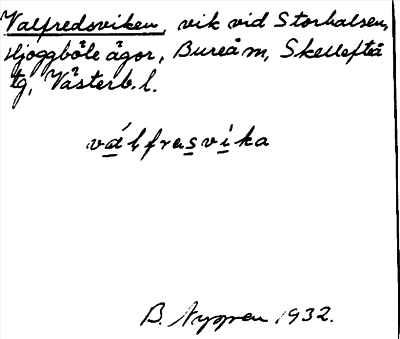 Valfredsviken, vik vid Storholsen,
Hjoggböle ägor, Bureå m, Skellefteå
tg, Västerb. l.
válfrasvíka
B. 1932.